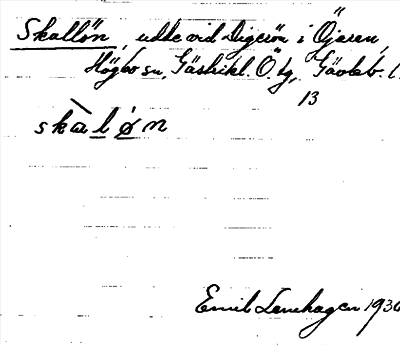 Skallön, udde vid Digerön i Öjaren,
Högbo sn, Gästrikl. Ö. tg, Gävleb. l.
13
skàlø̀n
Emil Lenhagen 1930